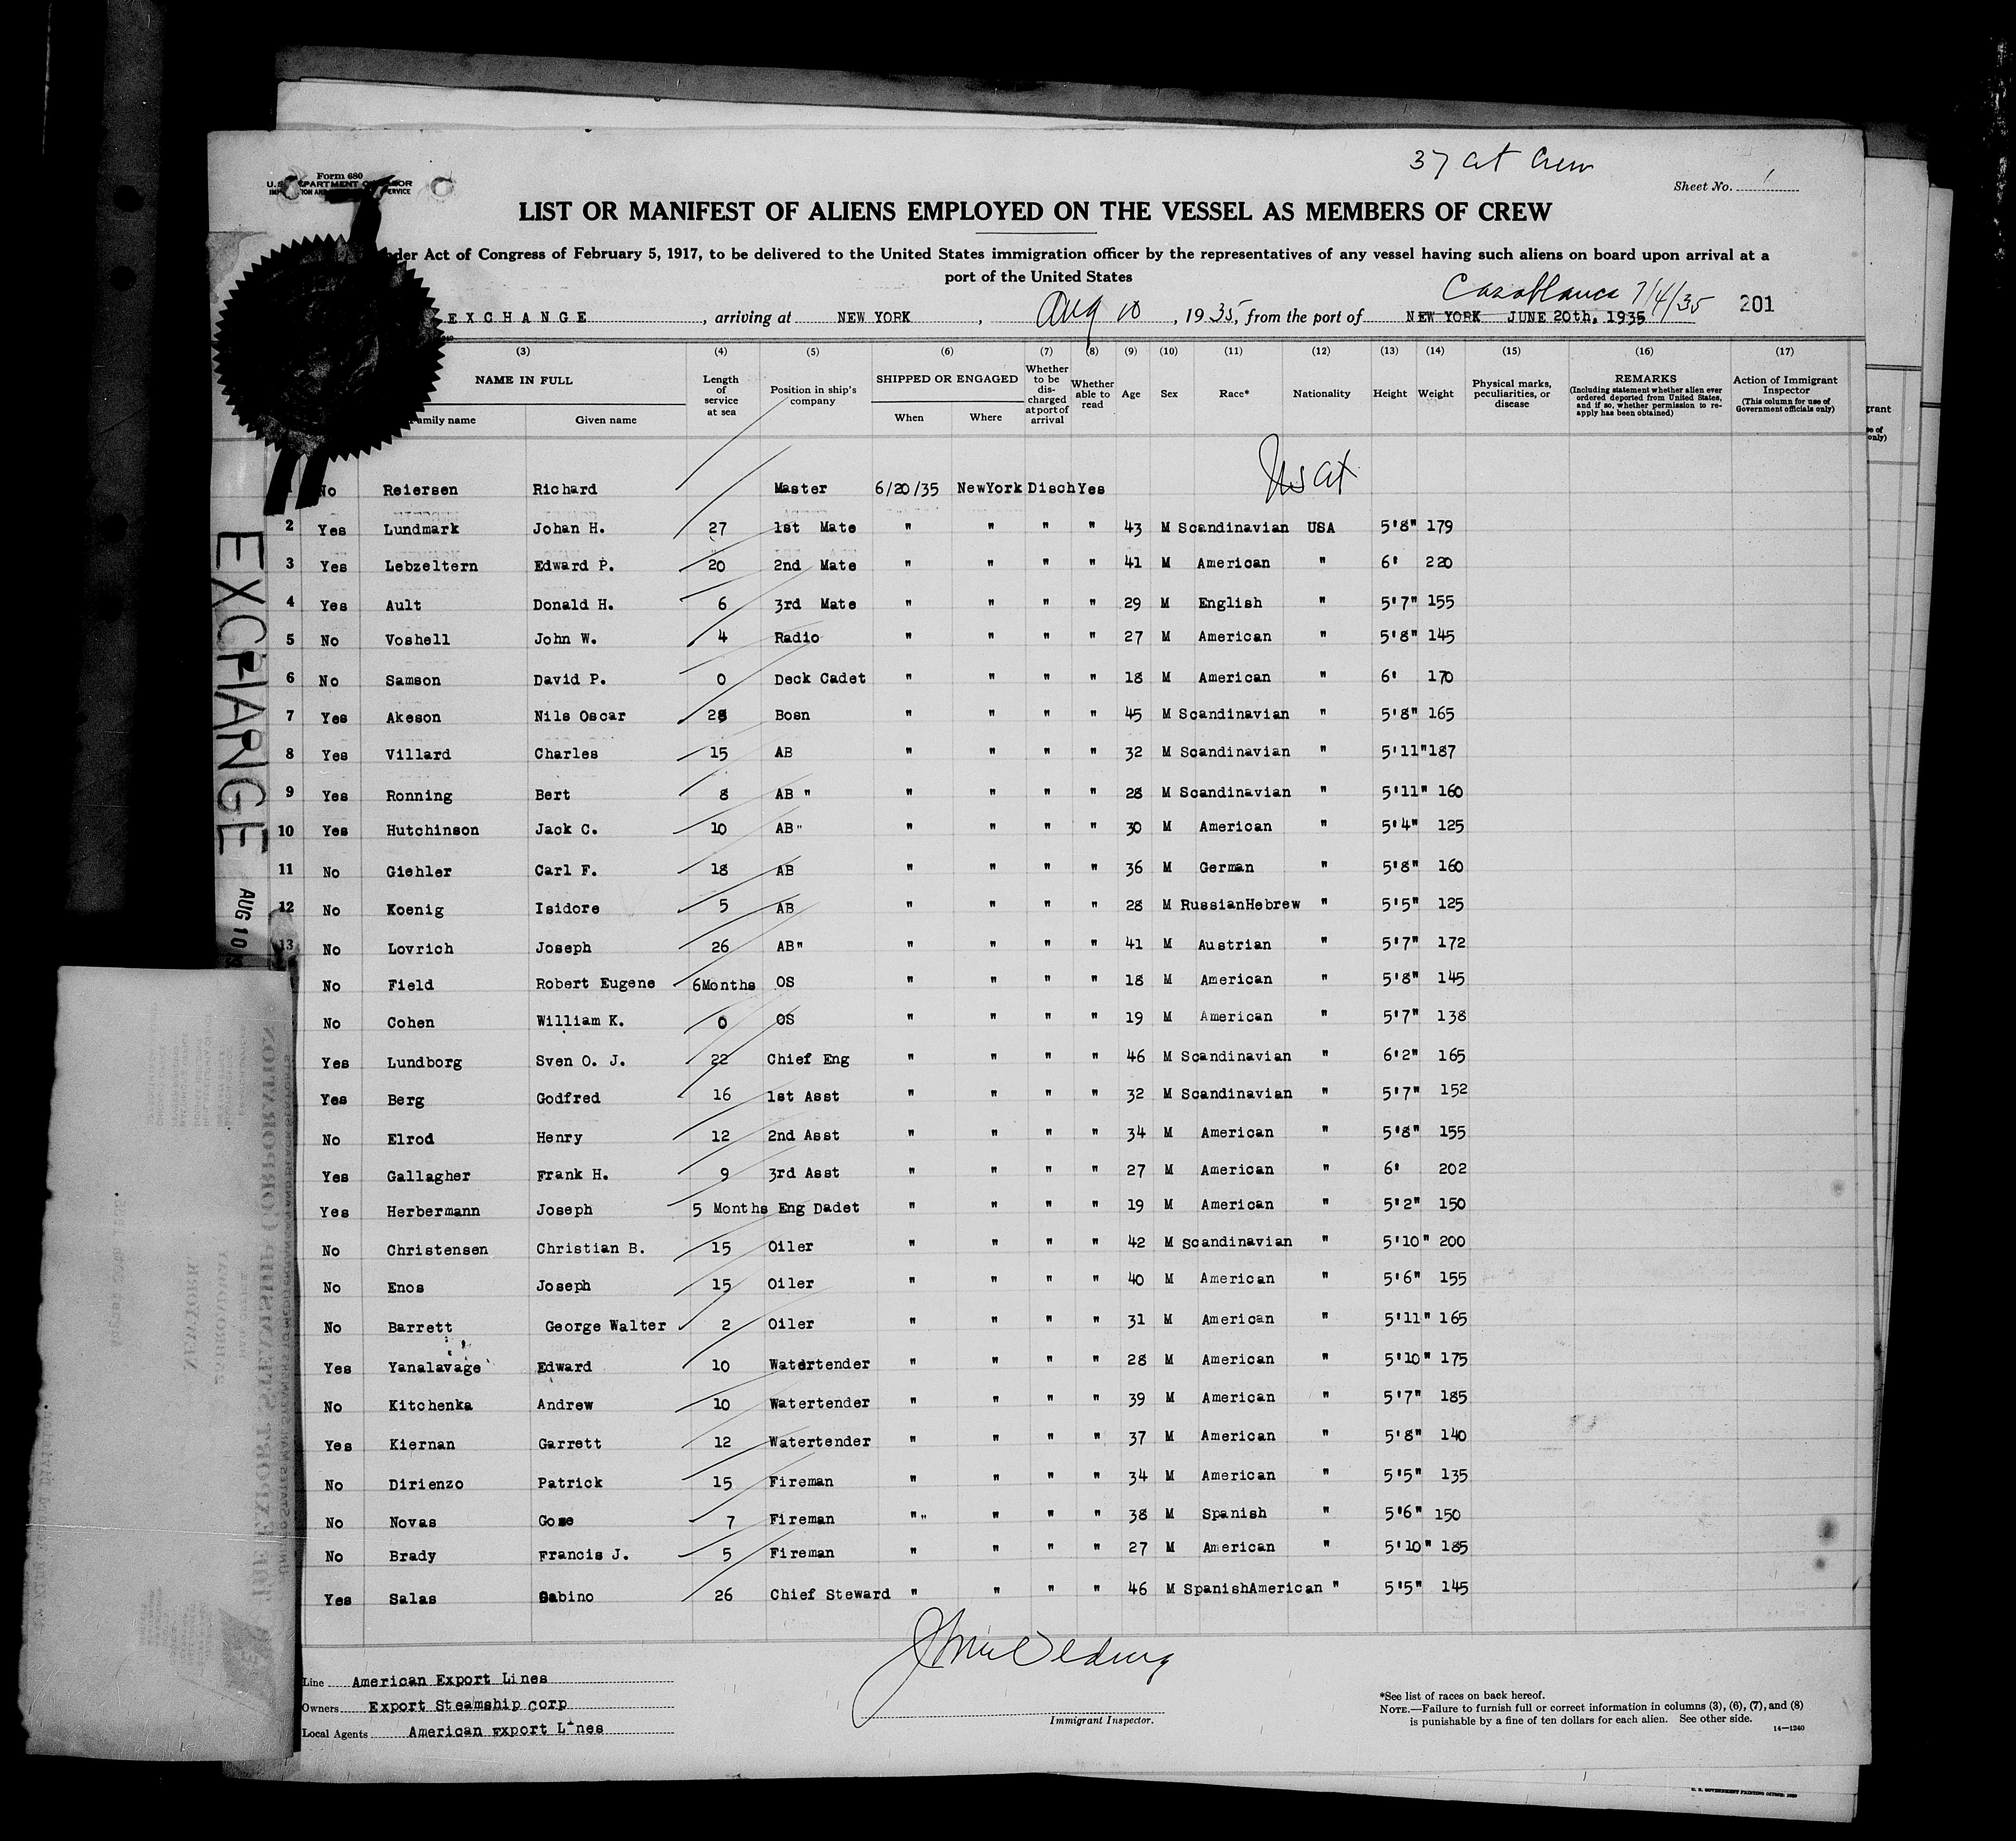 37 cit Crew
Form 680
U.S. DEPARTMENT OF LABOR
Sheet No. 1
LIST OR MANIFEST OF ALIENS EMPLOYED ON THE VESSEL AS MEMBERS OF CREW
Act of Congress of February 5, 1917, to be delivered to the United States immigration officer by the representatives of any vessel having such aliens on board upon arrival at a
port of the United States
Casablanca 7/4/35
EXCHANGE, arriving at NEW YORK, Aug 10, 1935, from the port of NEW YORK JUNE 20th, 1935 201
(3) (4) (5) (6) (7) (8) (9) (10) (11) (12) (13) (14) (15) (16) (17)
NAME IN FULL Family name Given name Length of service at sea Position in ship's company SHIPPED OR ENGAGED When Where Whether to be discharged at port of arrival Whether able to read Age Sex Race* Nationality Height Weight Physical marks, peculiarities, or disease REMARKS (Including statement whether alien ever ordered deported from United States, and if so, whether permission to reapply has been obtained) Action of Immigrant Inspector (This column for use of Government officials only)
No Reiersen Richard Master 6/20/35 NewYork Disch Yes US Cit
2 Yes Lundmark Johan H. 27 1st Mate " " " " 43 M Scandinavian USA 5'8" 179
3 Yes Lebzeltern Edward P. 20 2nd Mate " " " " 41 M American " 6' 220
4 Yes Ault Donald H. 6 3rd Mate " " " " 29 M English " 5'7" 155
5 No Voshell John W. 4 Radio " " " " 27 M American " 5'8" 145
6 No Samson David P. 0 Deck Cadet " " " " 18 M American " 6' 170
7 Yes Akeson Nils Oscar 28 Bosn " " " " 45 M Scandinavian " 5'8" 165
8 Yes Villard Charles 15 AB " " " " 32 M Scandinavian " 5'11" 187
9 Yes Ronning Bert 8 AB " " " " " 28 M Scandinavian " 5'11" 160
10 Yes Hutchinson Jack C. 10 AB" " " " " 30 M American " 5'4" 125
11 No Giehler Carl F. 18 AB " " " " 36 M German " 5'8" 160
12 No Koenig Isidore 5 AB " " " " 28 M RussianHebrew " 5'5" 125
13 No Lovrich Joseph 26 AB" " " " " 41 M Austrian " 5'7" 172
No Field Robert Eugene 6Months OS " " " " 18 M American " 5'8" 145
No Cohen William K. 0 OS " " " " 19 M American " 5'7" 138
Yes Lundborg Sven O. J. 22 Chief Eng " " " " 46 M Scandinavian " 6'2" 165
Yes Berg Godfred 16 1st Asst " " " " 32 M Scandinavian " 5'7" 152
No Elrod Henry 12 2nd Asst " " " " 34 M American " 5'8" 155
Yes Gallagher Frank H. 9 3rd Asst " " " " 27 M American " 6' 202
Yes Herbermann Joseph 5 Months Eng Dadet " " " " 19 M American " 5'2" 150
No Christensen Christian B. 15 Oiler " " " " 42 M Scandinavian " 5'10" 200
No Enos Joseph 15 Oiler " " " " 40 M American " 5'6" 155
No Barrett George Walter 2 Oiler " " " " 31 M American " 5'11" 165
Yes Yanalavage Edward 10 Watertender " " " " 28 M American " 5'10" 175
No Kitchenka Andrew 10 Watertender " " " " 39 M American " 5'7" 185
Yes Kiernan Garrett 12 Watertender " " " " 37 M American " 5'8" 140
No Dirienzo Patrick 15 Fireman " " " " 34 M American " 5'5" 135
No Novas Gose 7 Fireman "" " " " 38 M Spanish " 5'6" 150
No Brady Francis J. 5 Fireman " " " " 27 M American " 5'10" 185
Yes Salas Sabino 26 Chief Steward " " " " 46 M SpanishAmerican " 5'5" 145
EXCHANGE
AUG 10
Line American Export Lines
Owners Export Steamship Corp
Local Agents American Export Lines
Immigrant Inspector.
*See list of races on back hereof.
NOTE.—Failure to furnish full or correct information in columns (3), (6), (7), and (8)
is punishable by a fine of ten dollars for each alien. See other side.
14—1240